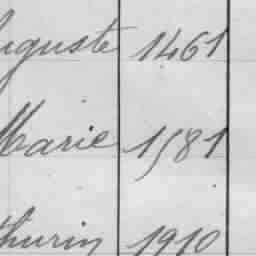 Auguste 1461
Marie 1581
thurin 1910